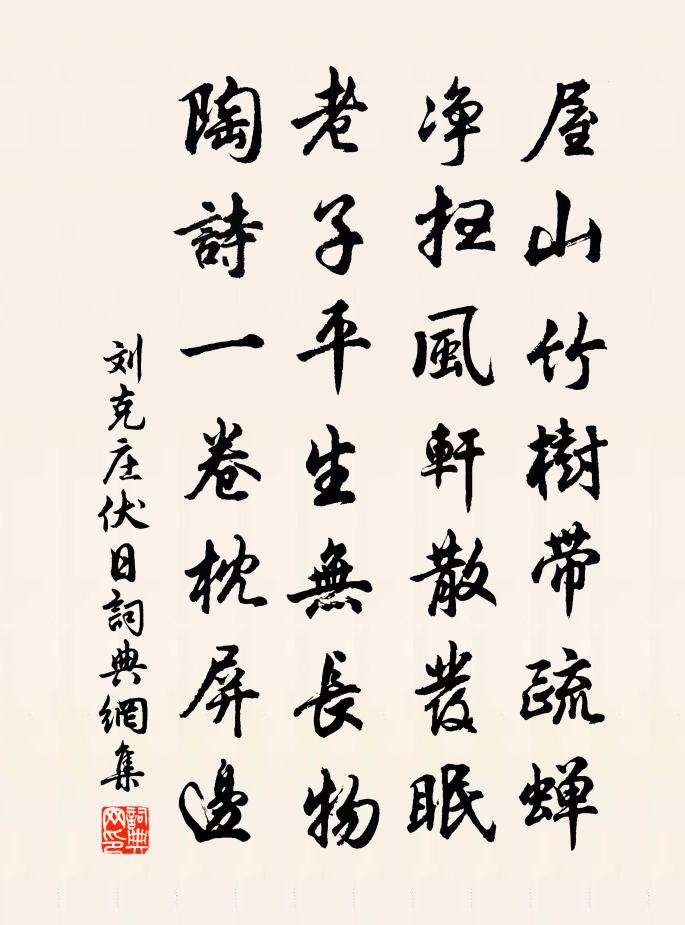 屋山竹樹帶疏蟬
净掃風軒散發眠
老子平生無長物
陶詩一卷枕屏邊
刘克庄伏日詞典網集
詞典網印